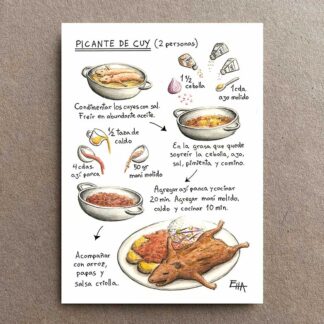 PICANTE DE CUY (2 personas)
Condimentar los cuyes con sal.
Freír en abundante aceite.
1 ½
cebolla
1 cda.
ajo molido
En la grasa que quede
sofreír la cebolla, ajo,
sal, pimienta y comino.
½ taza
de
caldo
4 cdas.
ají panca
50 gr
maní molido
Agregar ají panca y cocinar
20 min. Agregar maní molido,
caldo y cocinar 10 min.
Acompañar
con arroz,
papas y
salsa criolla.